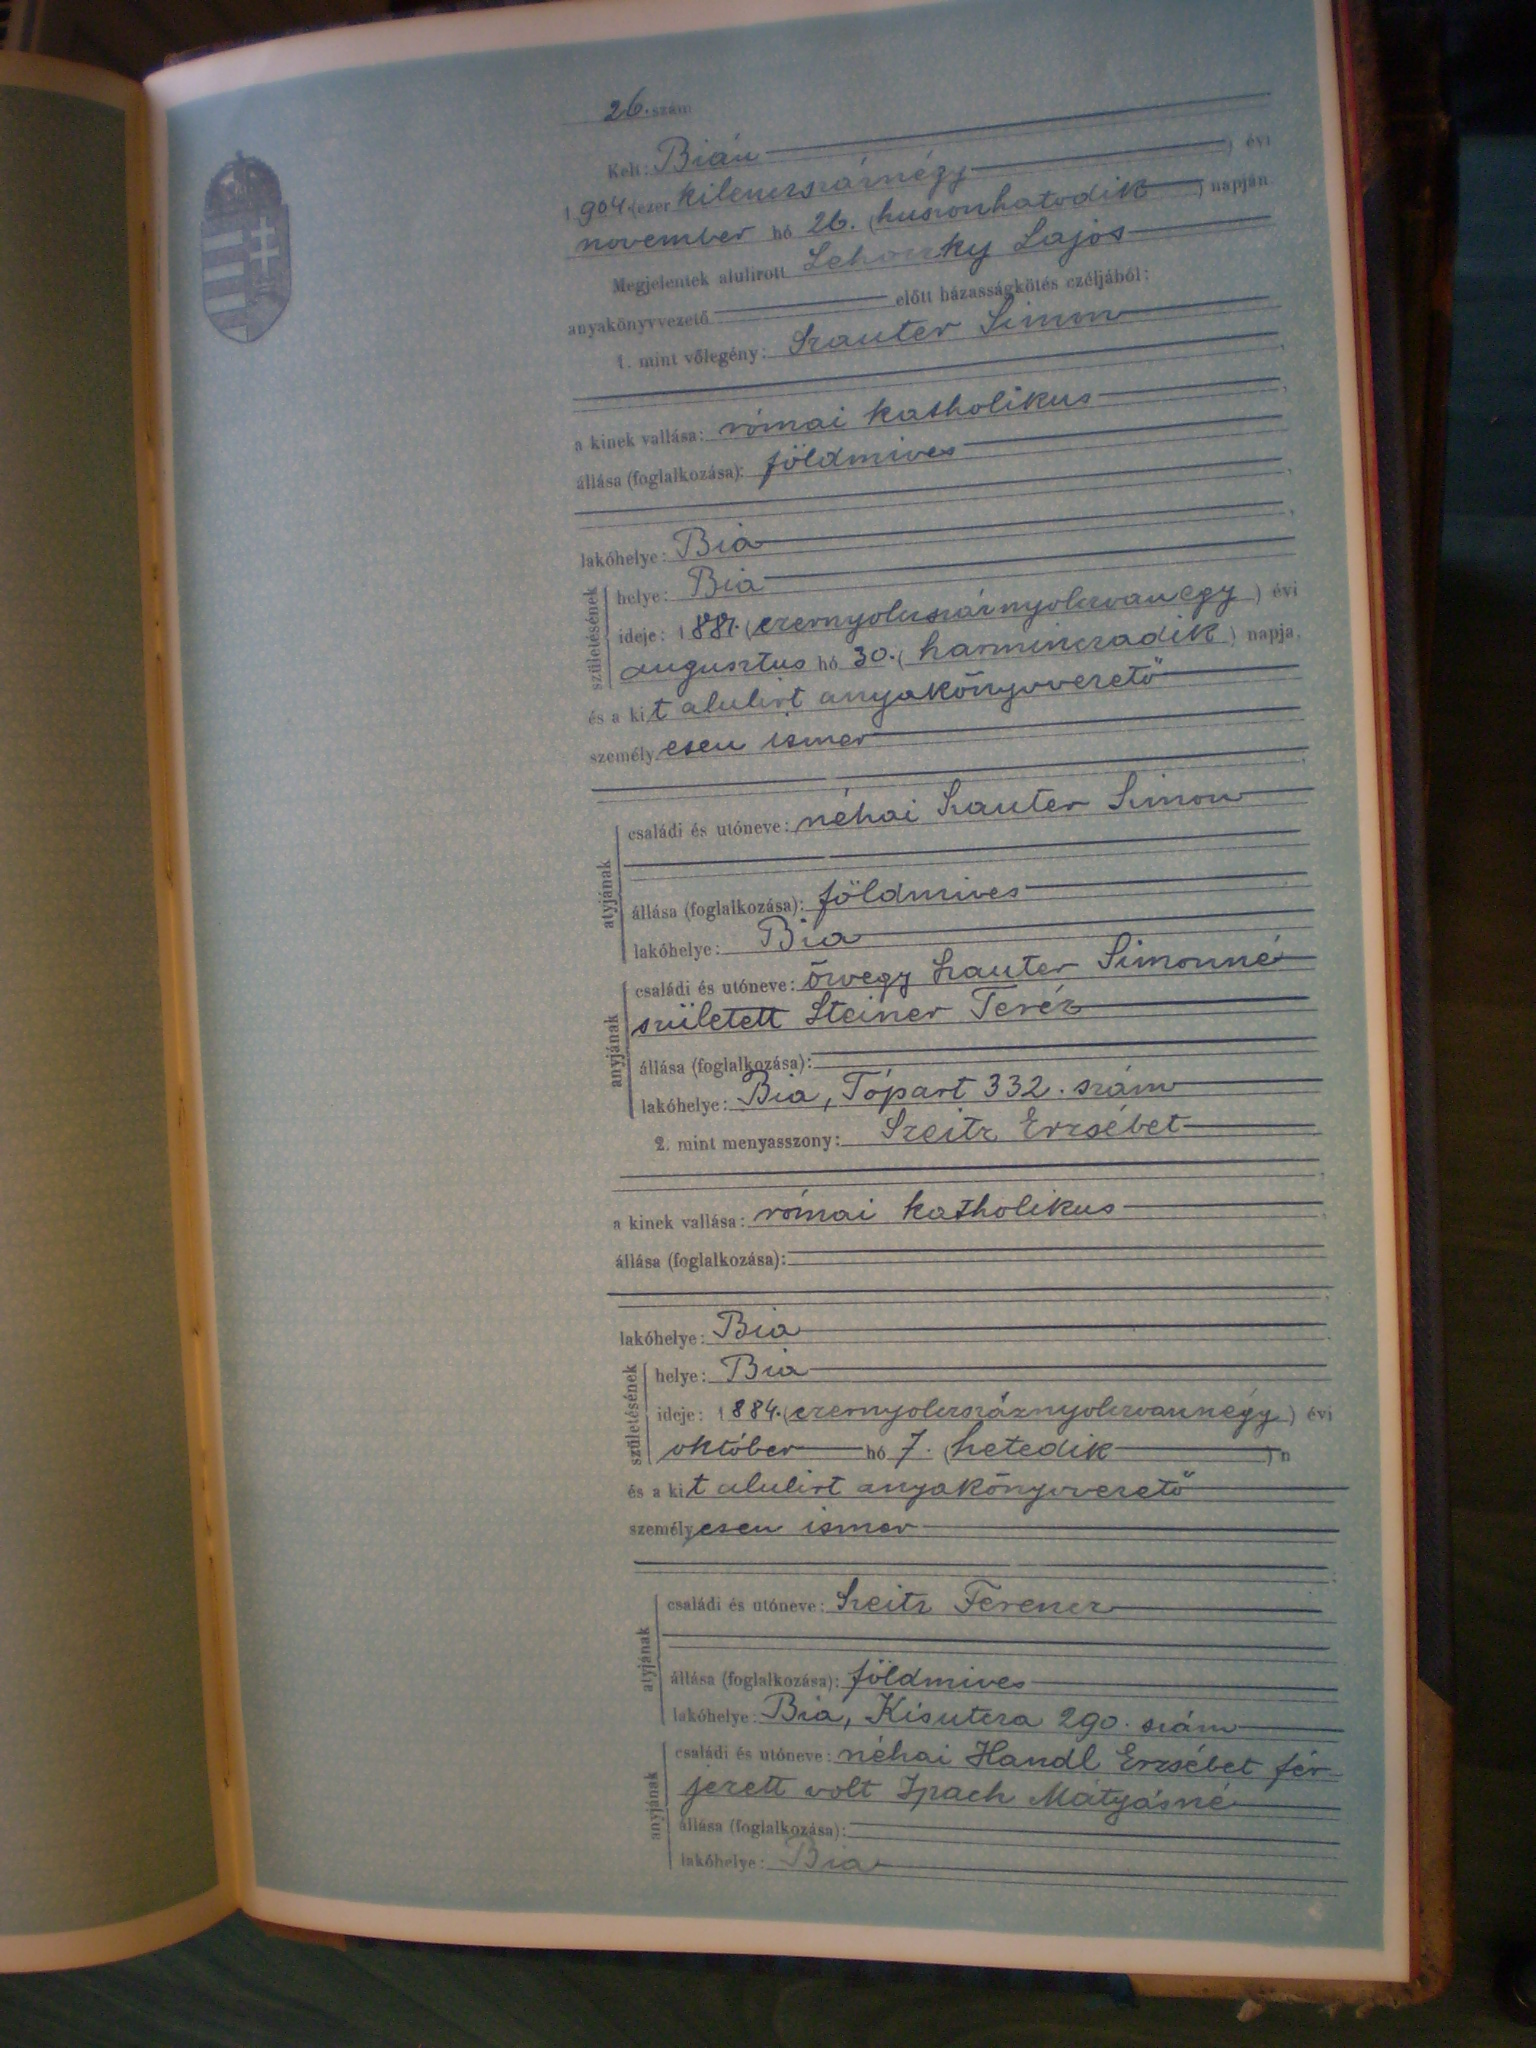 26. szám
Kelt: Bián
1904. (ezer kilenczszáznégy) évi
november hó 26. (huszonhatodik) napján
Megjelentek alulirott Lehoczky Lajos
anyakönyvvezető előtt házasságkötés czéljából:
1. mint vőlegény: Szauter Simon
a kinek vallása: római katholikus
állása (foglalkozása): földmives
lakóhelye: Bia
születésének
helye: Bia
ideje: 1881. (ezernyolczszáznyolczvanegy) évi
augusztus hó 30. (harminczadik) napja,
és a kit alulirt anyakönyvvezető
személyesen ismer
atyjának
családi és utóneve: néhai Szauter Simon
állása (foglalkozása): földmives
lakóhelye: Bia
anyjának
családi és utóneve: özvegy Szauter Simonné
született Steiner Teréz
állása (foglalkozása):
lakóhelye: Bia, Tópart 332. szám
2. mint menyasszony: Szeitz Erzsébet
a kinek vallása: római katholikus
állása (foglalkozása):
lakóhelye: Bia
születésének
helye: Bia
ideje: 1884. (ezernyolczszáznyolczvannégy) évi
október hó 7. (hetedik) n
és a kit alulirt anyakönyvvezető
személyesen ismer
atyjának
családi és utóneve: Szeitz Ferencz
állása (foglalkozása): földmives
lakóhelye: Bia, Kisutcza 290. szám
anyjának
családi és utóneve: néhai Handl Erzsébet fér-
jezett volt Ipach Mátyásné
állása (foglalkozása):
lakóhelye: Bia